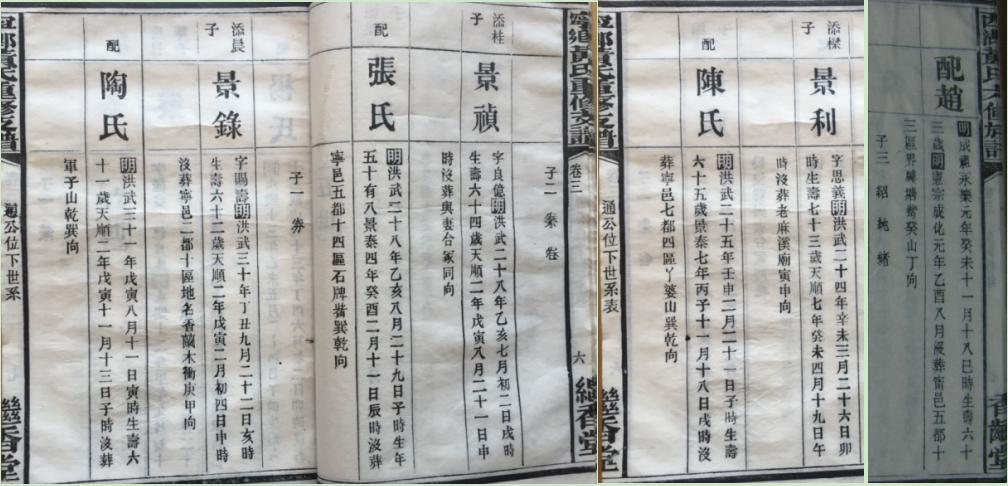 配趙
明成祖永樂元年癸未十一月十八巳時生壽六十
三歲明憲宗成化元年乙酉八月沒葬甯邑五都十
三區界牌塘觜癸山丁向
子三 紹 純 緒
添樑
子
景利
字思義明洪武二十四年辛未三月二十六日卯
時生壽七十三歲天順七年癸未四月十九日午
時沒葬老麻溪廟寅申向
配
陳氏
明洪武二十五年壬申二月二十一日子時生壽
六十五歲景泰七年丙子十一月十八日戌時沒
葬寧邑七都四區丫婆山巽乾向
寧鄉黃氏重修支譜
通公位下世系表
繼香堂
寧鄉黃氏重修支譜
卷三
六
繼香堂
子二 桊 卷
添桂
子
景禎
字良億明洪武二十八年乙亥七月初二日戌時
生壽六十四歲天順二年戊寅八月二十一日申
時沒葬與妻合冢同向
配
張氏
明洪武二十八年乙亥八月二十九日子時生年
五十有八景泰四年癸酉二月十一日辰時沒葬
寧邑五都十四區石牌觜巽乾向
子一 券
添晨
子
景錄
字賜壽明洪武三十年丁丑九月二十二日亥時
生壽六十二歲天順二年戊寅二月初四日申時
沒葬寧邑二都十區地名香蘭木衝庚甲向
配
陶氏
明洪武三十一年戊寅八月十一日寅時生壽六
十一歲天順二年戊寅十一月十三日子時沒葬
軍子山乾巽向
寧鄉黃氏重修支譜
通公位下世系
繼香堂